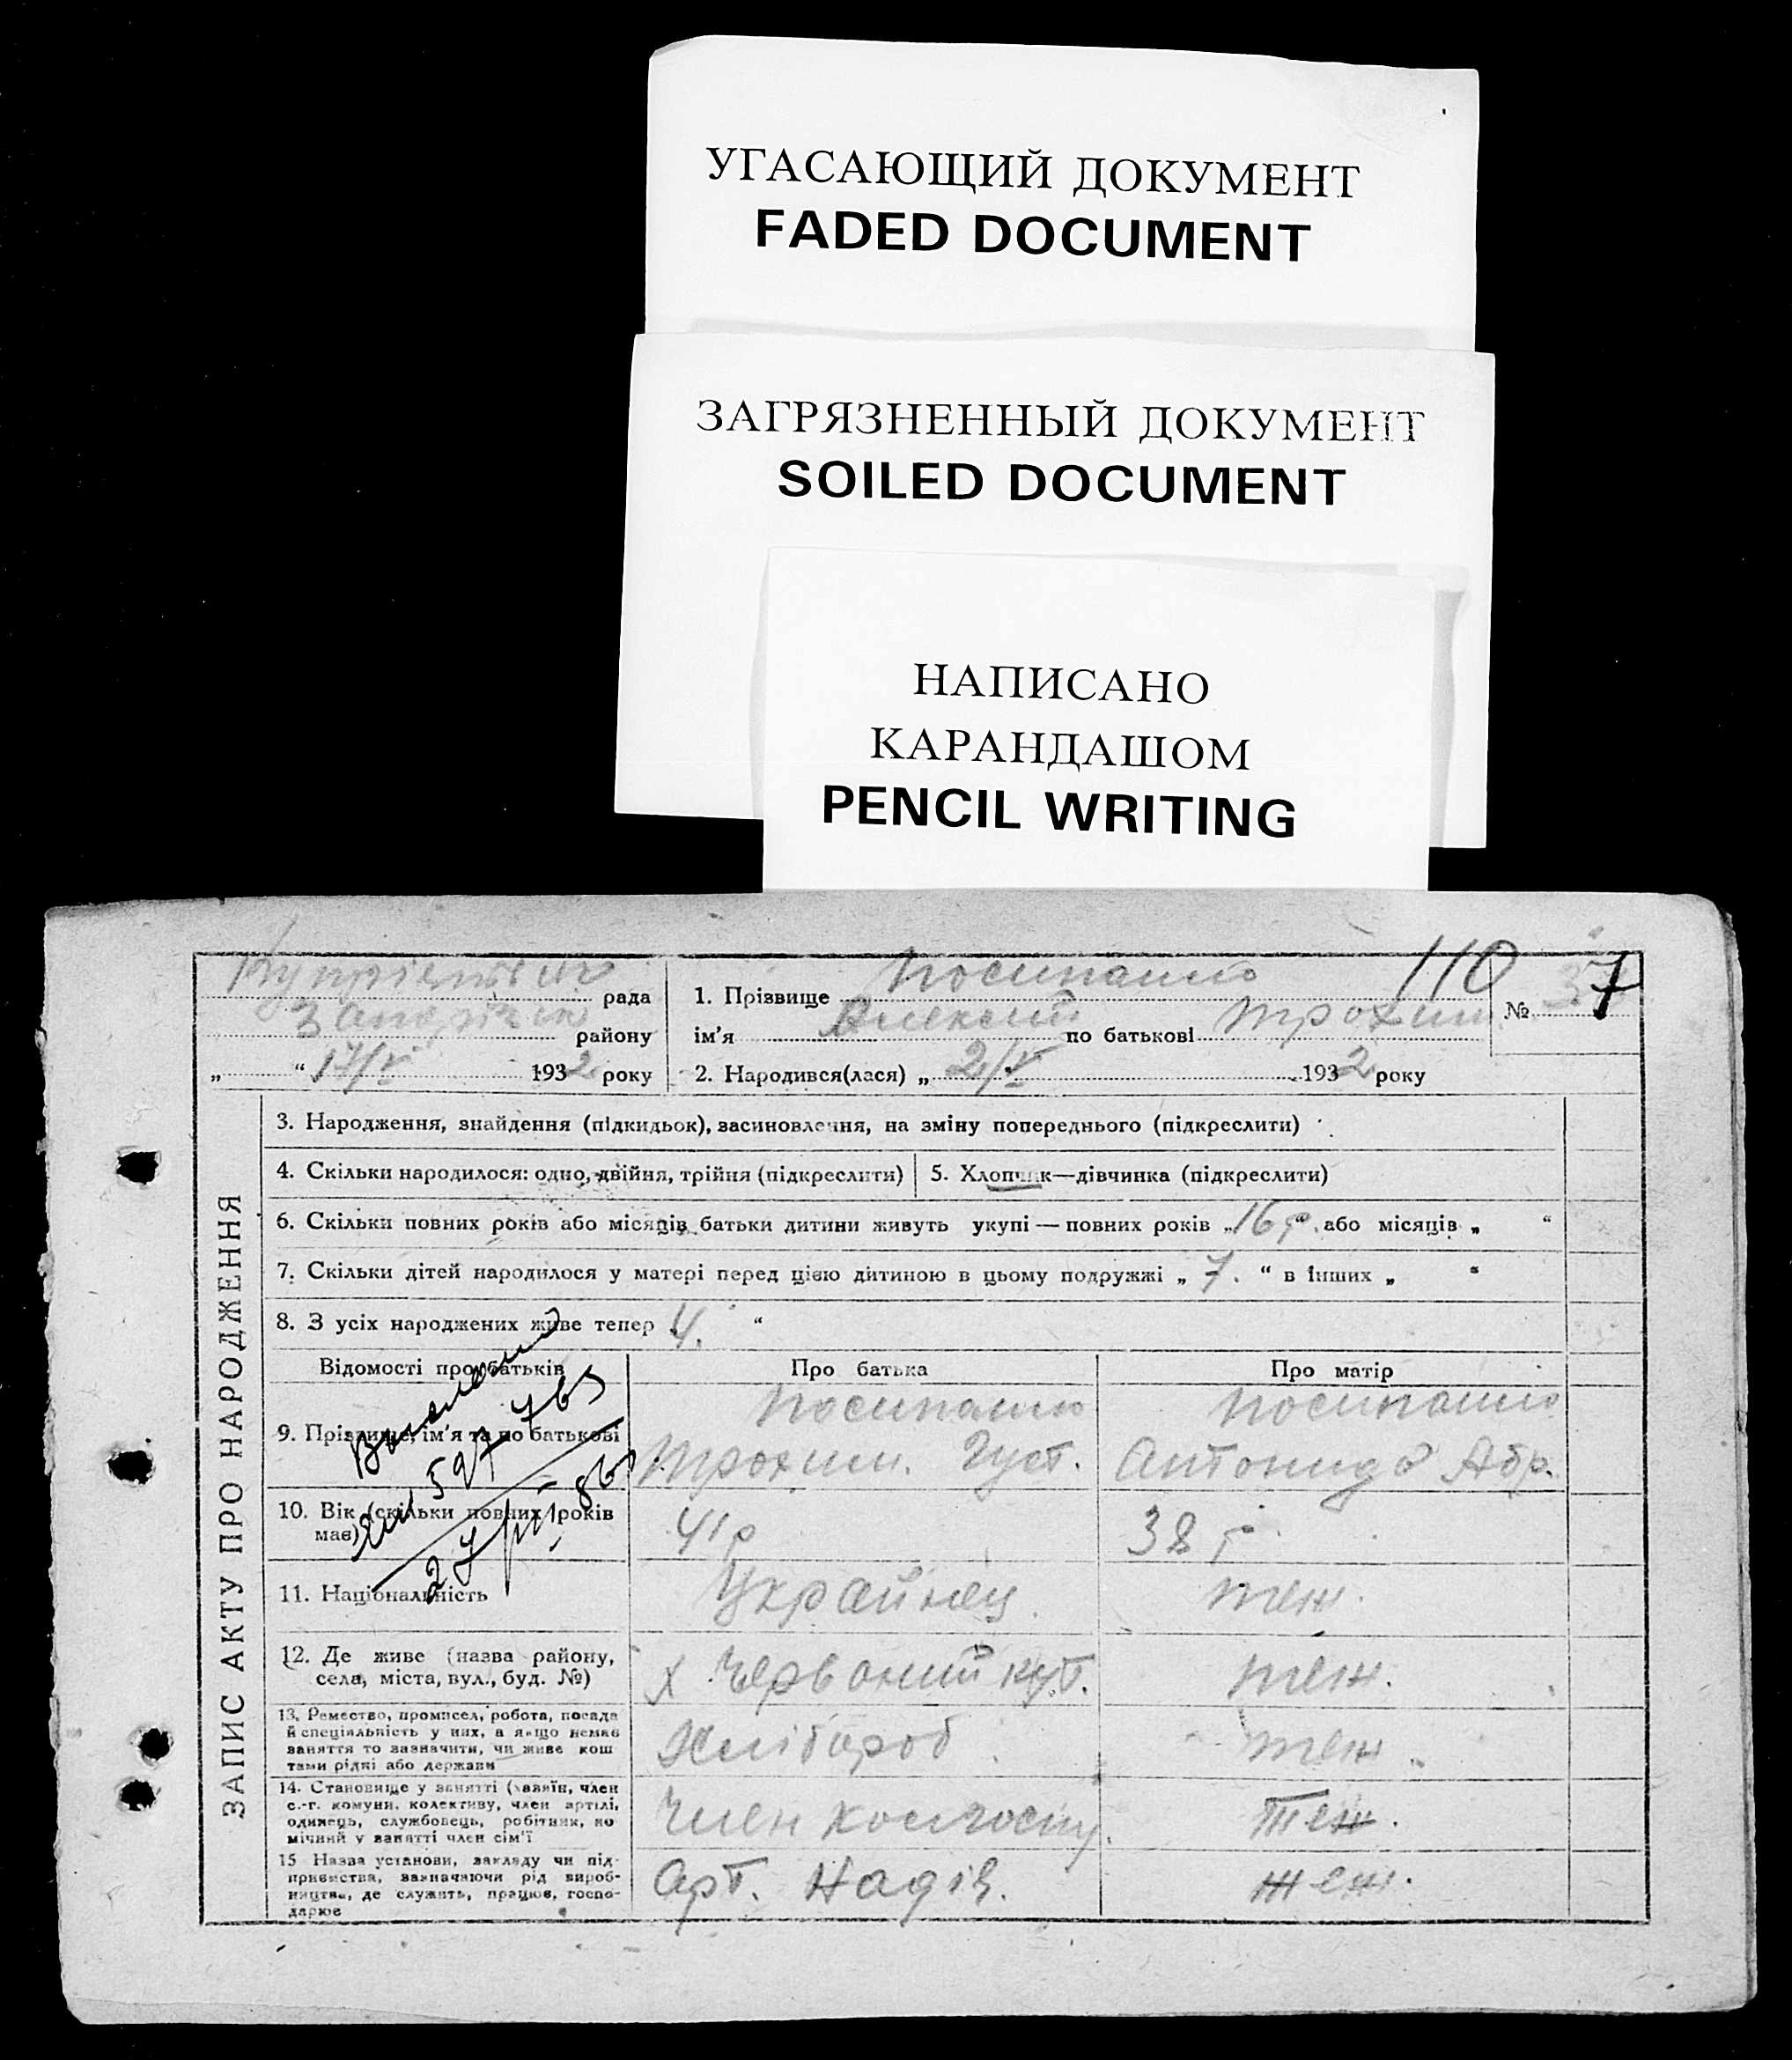 УГАСАЮЩИЙ ДОКУМЕНТ
FADED DOCUMENT
ЗАГРЯЗНЕННЫЙ ДОКУМЕНТ
SOILED DOCUMENT
НАПИСАНО
КАРАНДАШОМ
PENCIL WRITING
рада
району
„ “ 17/V 1932 року
110
1. Прізвище Посипайло
ім'я Алексей по батькові Трохим.
№ 7
2. Народився(лася) „ 2/V 1932 року
ЗАПИС АКТУ ПРО НАРОДЖЕННЯ
3. Народження, знайдення (підкидьок), засиновлення, на зміну попереднього (підкреслити)
4. Скільки народилося: одно, двійня, трійня (підкреслити)
5. Хлопчик—дівчинка (підкреслити)
6. Скільки повних років або місяців батьки дитини живуть укупі — повних років „16 р.“ або місяців „ “
7. Скільки дітей народилося у матері перед цією дитиною в цьому подружжі „ 7. “ в інших „ “
8. З усіх народжених живе тепер „ 4. “
Відомості про батьків
Про батька
Про матір
9. Прізвище, ім'я та по батькові
Посипайло
Трохим. Густ.
Посипайло
Антонида Абр.
10. Вік (скільки повних років
має)
41 р
38 р
11. Національність
Украйнец.
теж.
12. Де живе (назва району,
села, міста, вул., буд. №)
х Червоний кут.
теж.
13. Ремество, промисел, робота, посада
й спеціяльність у них, а якщо немає
заняття то зазначити, чи живе кош
тами рідні або держави
Хлібороб
теж.
14. Становище у занятті (хазяїн, член
с.-г. комуни, колективу, член артілі,
одинець, службовець, робітник, по
мічний у занятті член сім'ї
Член колгоспу.
теж.
15 Назва установи, закладу чи під-
приємства, зазначаючи рід вироб-
ництва, де служить, працює, госпо-
дарює
Арт. Надія.
теж.